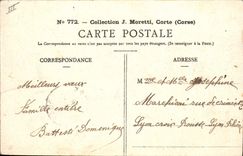 No 772. - Collection J. Moretti, Corte (Corse)
CARTE POSTALE
La Correspondance au verso n'est pas acceptée par tous les pays étrangers. (Se renseigner à la Poste.)
CORRESPONDANCE
ADRESSE
Meilleurs vœux
Famille entière
Battesti Dominique
M me et Mlle Joséphine
rue
Lyon croix Rousse Lyon Rhône